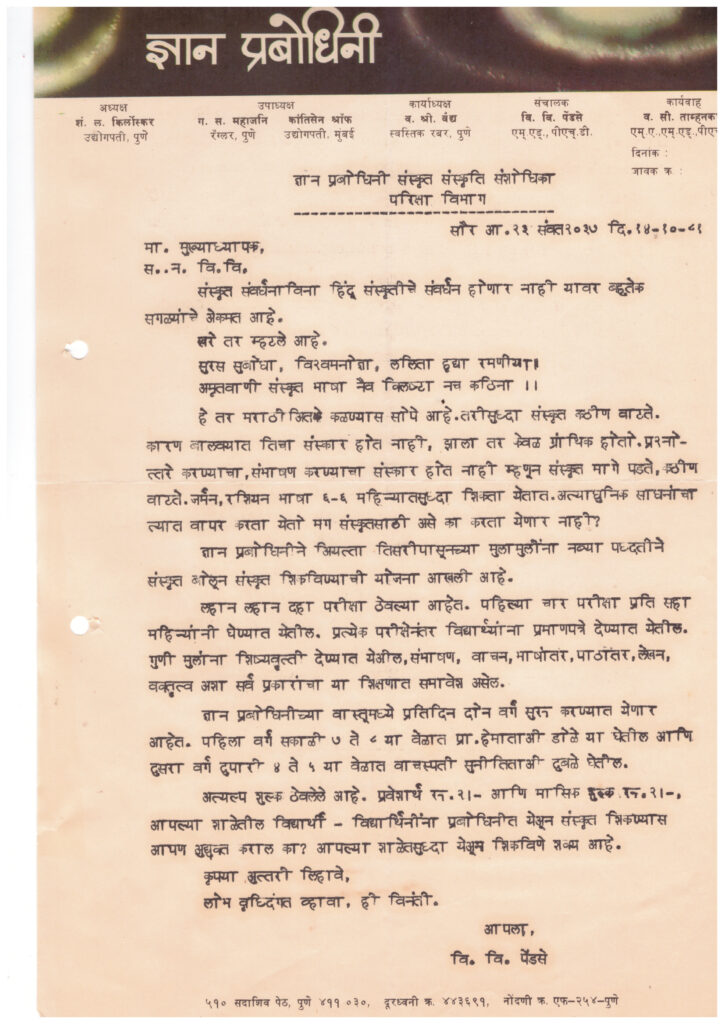 ज्ञान प्रबोधिनी
अध्यक्ष उपाध्यक्ष कार्याध्यक्ष संचालक कार्यवाह
शं. ल. किर्लोस्कर ग. स. महाजनि कांतिसेन श्रॉफ ब. श्री. वैद्य वि. वि. पेंडसे व. सी. ताम्हनक
उद्योगपती, पुणे रँग्लर, पुणे उद्योगपती, मुंबई स्वस्तिक रबर, पुणे एम्.एड्., पीएच्.डी. एम्.ए., एम्.एड्.,पीए
दिनांक :
जावक क्र :
ज्ञान प्रबोधिनी संस्कृत संस्कृति संशोधिका
परिक्षा विभाग
सौर आ.२२ संवत२०३७ दि.१४-१०-८१
मा. मुख्याध्यापक,
स..न. वि.वि.
संस्कृत संवर्धनाविना हिंदू संस्कृतीचे संवर्धन होणार नाही यावर बहुतेक
सगळ्यांचे अेकमत आहे.
खरे तर म्हटले आहे.
सुरस सुबोधा, विश्वमनोज्ञा, ललिता हृद्या रमणीया।
अमृतवाणी संस्कृत भाषा नैव क्लिष्टा नच कठिना ।।
हे तर मराठी अितके कळण्यास सोपे आहे.तरीसुध्दा संस्कृत कठीण वाटते.
कारण बालवयात तिचा संस्कार होत नाही, झाला तर केवळ ग्रांथिक होतो.प्रश्नो-
त्तरे करण्याचा,संभाषण करण्याचा संस्कार होत नाही म्हणून संस्कृत मागे पडते,कठीण
वाटते.जर्मन,रशियन भाषा ६-६ महिन्यातसुध्दा शिकता येतात.अत्याधुनिक साधनांचा
त्यात वापर करता येतो मग संस्कृतसाठी असे का करता येणार नाही?
ज्ञान प्रबोधिनीने अियत्ता तिसरीपासूनच्या मुलामुलींना नव्या पध्दतीने
संस्कृत बोलून संस्कृत शिकविण्याची योजना आखली आहे.
लहान लहान दहा परीक्षा ठेवल्या आहेत. पहिल्या चार परीक्षा प्रति सहा
महिन्यांनी घेण्यात येतील. प्रत्येक परीक्षेनंतर विद्यार्थ्यांना प्रमाणपत्रे देण्यात येतील.
गुणी मुलांना शिष्यवृत्ती देण्यात येअील,संभाषण, वाचन,भाषांतर,पाठांतर,लेखन,
वक्तृत्व अशा सर्व प्रकारांचा या शिक्षणात समावेश असेल.
ज्ञान प्रबोधिनीच्या वास्तूमध्ये प्रतिदिन दोन वर्ग सुरू करण्यात येणार
आहेत. पहिला वर्ग सकाळी ७ ते ८ या वेळात प्रा.हेमाताअी डोळे या घेतील आणि
दुसरा वर्ग दुपारी ४ ते ५ या वेळात वाचस्पती सुनीतिताअी दुबळे घेतील.
अत्यल्प शुल्क ठेवलेले आहे. प्रवेशार्थ रू.२।- आणि मासिक शुल्क रू.२।-,
आपल्या शाळेतील विद्यार्थी - विद्यार्थिनींना प्रबोधिनीत येअून संस्कृत शिकण्यास
आपण अुद्युक्त कराल का? आपल्या शाळेतसुध्दा येअून शिकविणे शक्य आहे.
कृपया अुत्तरी लिहावे,
लोभ वृध्दिंगत व्हावा, ही विनंती.
आपला,
वि. वि. पेंडसे
५१० सदाशिव पेठ, पुणे ४११ ०३०, दूरध्वनी क्र. ४४३६९१, नोंदणी क्र. एफ-२५४-पुणे